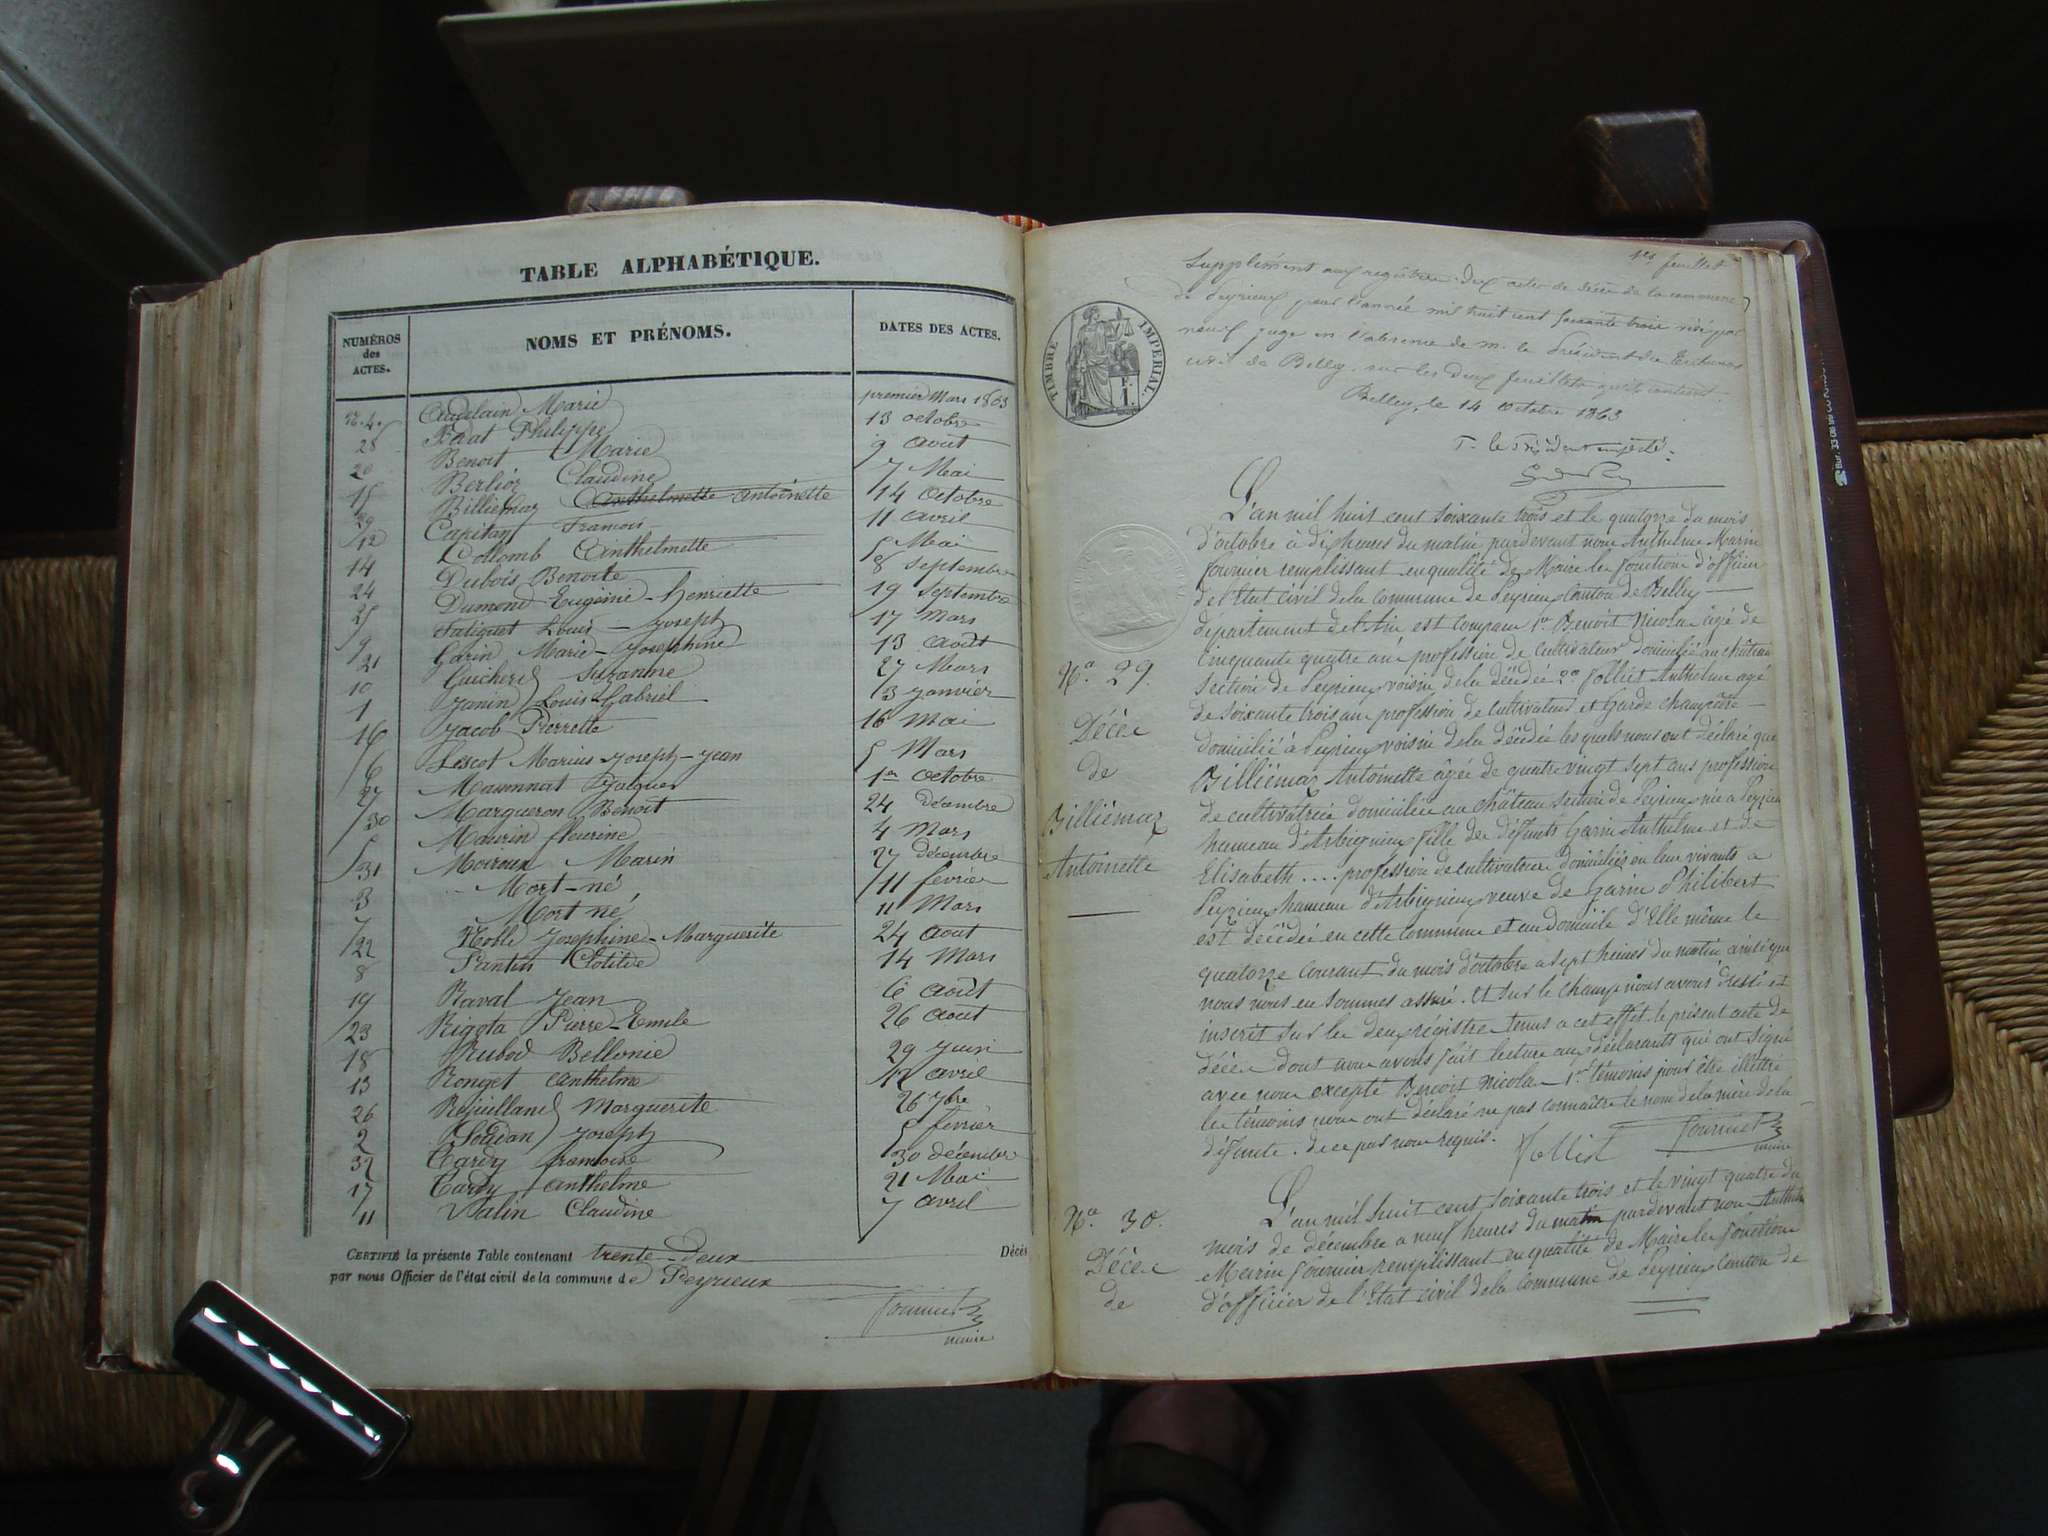 TABLE ALPHABÉTIQUE.
NUMÉROS des ACTES. NOMS ET PRÉNOMS. DATES DES ACTES.
N. 4. Marie premier Mars 1863
28 Philippe 13 octobre
20 Benoit Marie 9 août
15 Berlioz Claudine 7 Mai
29 Billiémaz Anthelmette antoinette 14 octobre
12 Capitan francois 11 avril
14 Collomb Anthelmette 5 Mai
24 Dubois Benoite 8 septembre
25 Dumond Eugénie-henriette 19 septembre
9 Louis-Joseph 17 Mars
21 Garin Marie-Josephine 13 août
10 Guicherd Suzanne 27 Mars
1 Janin Louis-Gabriel 3 janvier
16 Jacob Pierrette 16 Mai
6 Lescot Marius-Joseph-Jean 5 Mars
27 Massonnat Jacques 1er octobre
30 Margueron Benoit 24 décembre
5 Maurin fleurine 4 Mars
31 Moiroux Marin 27 décembre
3 Mort-né 11 fevrier
7 Mort né 11 Mars
22 Noble Josephine-Marguerite 24 Aout
8 Pantin Clotilde 14 Mars
19 Raval Jean 6 août
23 Rigota Pierre-Emile 26 aout
18 Rubod Bellonie 29 Juin
13 Ronget anthelme 12 avril
26 Marguerite 26 7bre
2 Joseph 5 février
32 Tardy francoise 30 décembre
17 Tardy anthelme 21 Mai
11 Valin Claudine 7 avril
CERTIFIÉ la présente Table contenant trente-Deux Décès
par nous Officier de l'état civil de la commune de Peyrieux
Fournier
maire
1er feuillet
Supplément aux registres des actes de décès de la commune
de Peyrieux pour l'année mil huit cent soixante trois par
neuf juge en l'absence de M. le Président du Tribunal
civil de Belley, sur les deux feuillets qu'il contient.
Belley, le 14 octobre 1863
P. le Président empêché.
TIMBRE IMPERIAL.
1 F.
L'an mil huit cent soixante trois et le quatorze du mois
d'octobre à dix heures du matin pardevant nous Anthelme Marin
fournier remplissant en qualité de Maire les fonctions d'officier
de l'Etat civil de la commune de Peyrieux canton de Belley
departement de l'Ain est comparu 1o Benoit Nicolas âgé de
cinquante quatre ans profession de cultivateur domicilié au château
section de Peyrieux voisin de la décédée 2o Jollist Anthelme agé
de soixante trois ans profession de cultivateur et Garde champêtre
domicilié à Peyrieux voisin de la décédée les quels nous ont déclaré que
Billiémaz Antoinette âgée de quatre vingt sept ans profession
de cultivatrice domiciliée au château section de Peyrieux née a Peyrieux
hameau d'Arbignieu fille des défunts Garin Anthelme et de
Elisabeth .... profession de cultivateurs domiciliés en leur vivants a
Peyrieux hameau d'Arbignieu veuve de Garin Philibert
est décédée en cette commune et au domicile d'Elle même le
quatorze courant du mois d'octobre a sept heures du matin ainsi que
nous nous en sommes assuré. Et sur le champ nous avons dressé et
inscrit sur les deux régistres tenus a cet effet le présent acte de
décès dont nous avons fait lecture aux déclarants qui ont signé
avec nous excepté Benoit Nicolas 1er témoins pour être illettré
les témoins nous ont déclaré ne pas connaître le nom de la mère de la
défunte. de ce pas nous requis. Jollist Fournier
maire
No. 29.
Décès
de
Billiémaz
Antoinette
No. 30.
Décès
de
L'an mil huit cent soixante trois et le vingt quatre du
mois de décembre a neuf heures du matin pardevant nous Anthelme
Marin fournier remplissant en qualité de Maire les fonctions
d'officier de l'Etat civil de la commune de Peyrieux canton de